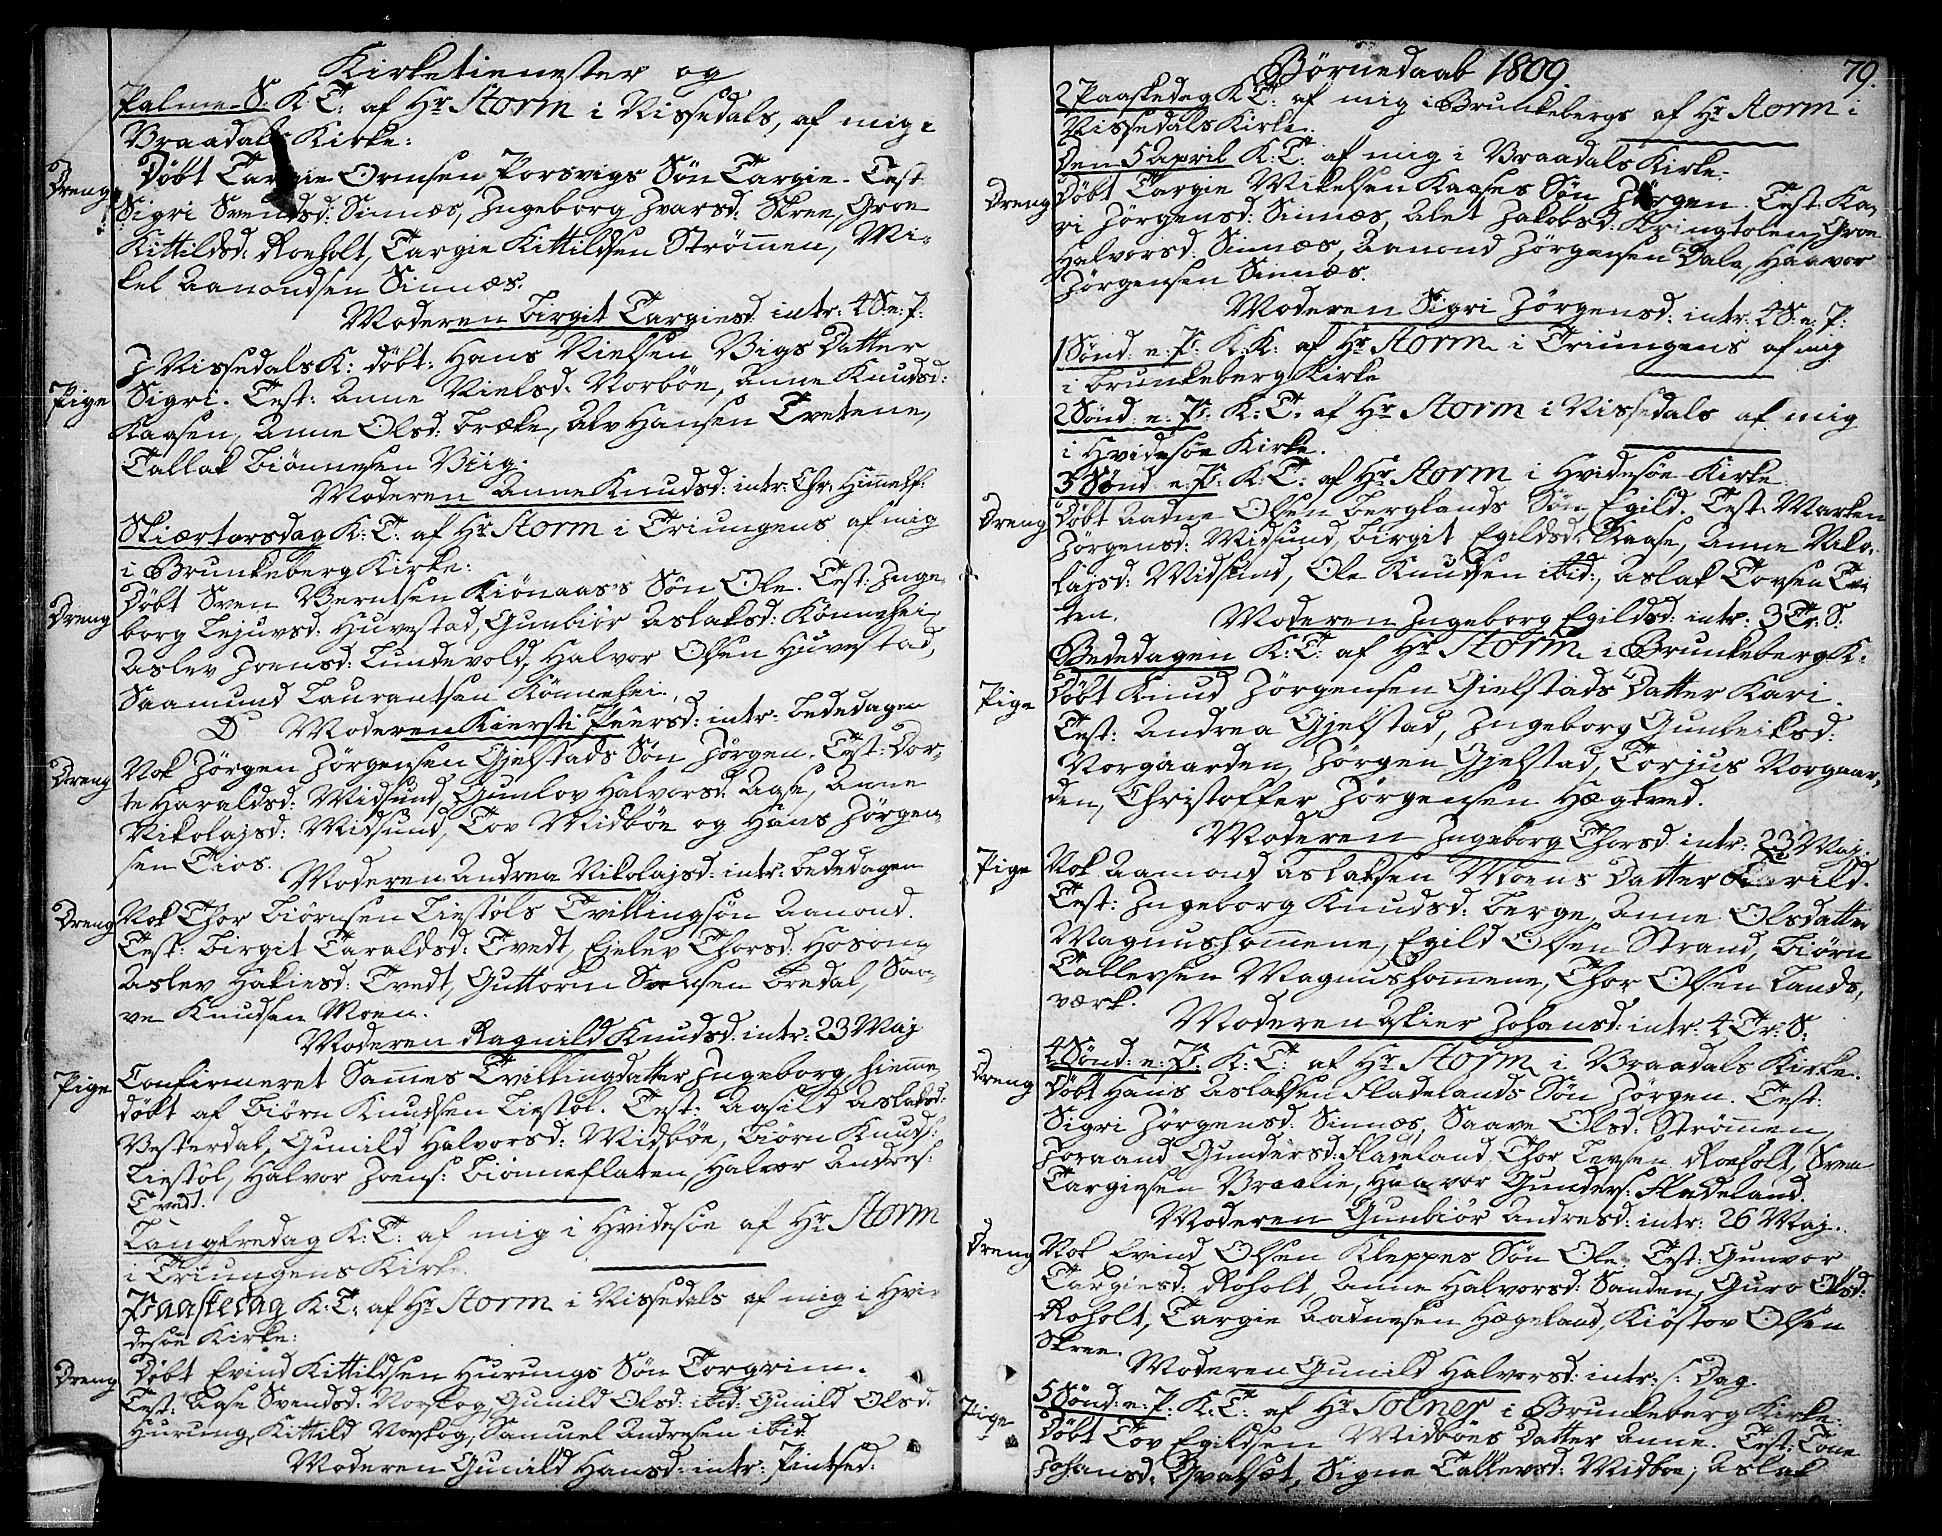 Kirketienester og
Palme-S. K.T. af Hr Storm i Nissedals, af mig i
Braadals Kirke:
Dreng Døbt Targie Ormsen Porsvigs Søn Targie. Test
Sigri Svendsd: Sinnæs, Ingeborg Ivarsd: Skree, Groe
Kittildsd: Roeholt, Targie Kittildsen Strømen, Mi-
kel Aanondsen Sinnæs.
Moderen Birgit Targiesd. intr: 4 S. e. P.
I Nissedals K: døbt: Hans Nielsen Vigs Datter
Pige Sigri. Test: Anne Nielsd. Norbøe, Anne Knudsd:
Kaasen, Anne Olsd: Bræke, Alv Hansen Tvetene,
Tallak Biønnesen Viig.
Moderen Anne Knudsd: intr: Chr: Himelf.
Skiærtorsdag K: T: af Hr Storm i Triungens af mig
i Brunkeberg Kirke:
Dreng Døbt Sven Berntsen Kiønaas's Søn Ole. Test: Inge-
borg Lejuvsd: Huvestad, Gunbiør Aslaksd: Kønnehei,
Aslev Joensd: Lundevold, Halvor Olsen Huvestad,
Saamund Laurantsen Kønnehei.
D Moderen Kiersti Peersd: intr: Bededagen
Dreng Nok Jørgen Jørgensen Gjelstads Søn Jørgen. Test: Dor-
te Haraldsd: Midsund, Gunlov Halvorsd: Aase, Anne
Nikolajsd: Midsund, Tov Midbøe og Hans Jørgen-
sen Tios.
Moderen Andrea Nikolajsd: intr: Bededagen
Dreng Nok Thor Biørnsen Liestøls Tvillingsøn Aanond.
Test: Birgit Taraldsd: Tvedt, Ejelev Thorsd: Hosom,
Aslev Hakiesd: Tvedt, Guttorm Svensen Bredal, Saa-
ve Knudsen Moen.
Moderen Ragnild Knudsd: intr: 23 Maj
Pige Confirmeret Sammes Tvillingdatter Ingeborg, hieme-
døbt af Biørn Knudsen Liestøl. Test: Aasild Aslaksd:
Vesterdal, Gunild Halvorsd: Midbøe, Biørn Knuds:
Liestøl, Halvor Joens: Biønneflaten, Halvor Andres:
Tvedt.
Langfredag K: T: af mig i Hvidesøe af Hr Storm
i Triungens Kirke.
Paaskedag K: T: af Hr Storm i Nissedals af mig i Hvi-
desøe Kirke:
Dreng Døbt Evind Kittildsen Hurungs Søn Torgrim.
Test: Aase Svendsd: Norskog, Gunild Olsd: ibid: Gunild Olsd.
Hurung, Kittild Norskog, Samuel Andresen ibid.
Moderen Gunild Hansd: intr: Pintsed:
Børnedaab 1809. 79.
2 Paaskedag K T: af mig i Brunkebergs af Hr Storm i
Nissedals Kirke.
Den 5 April K: T: af mig i Braadals Kirke.
Dreng Døbt Targie Mikelsen Kaases Søn Jørgen. Test. Ka-
ri Jørgensd: Sinnæs, Alet Jakobsd: Kringtolen, Groe
Halvorsd: Sinnæs, Aanond Jørgensen Dale, Haavor
Jørgensen Sinnæs.
Moderen Sigri Jørgensd: intr: 4 S: e: P:
1 Sønd: e: P: K: K: af Hr Storm i Triungens af mig
i Brunkeberg Kirke
2 Sønd: e: P: K: T. af Hr Storm i Nissedals af mig
i Hvidesøe Kirke.
3 Sønd: e: P. K: T: af Hr Storm i Hvidesøe Kirke
Dreng Døbt Aadne Olsen Berglands Søn Egild. Test. Marken
Jørgensd: Midsund, Birgit Egildsd: Kaase, Anne Niko-
lajsd: Midsund, Ole Knudsen ibid:, Aslak Tovsen
ten. Moderen Ingeborg Egildsd: intr: 3 Tr: S.
Bededagen K: T: af Hr Storm i Brunkeberg K:
Pige Døbt Knud Jørgensen Gielstads Datter Kari.
Test: Andrea Gjelstad, Ingeborg Gunleiksd:
Norgaarden, Jørgen Gjelstad, Torjus Norgaar-
den, Christoffer Jørgensen Hægtved.
Moderen Ingeborg Thorsd: intr: 23 Maj:
Pige Nok Aamond Aslaksen Moens Datter
Test: Ingeborg Knudsd: Berge, Anne Olsdatter
Magnushommene, Egild Olsen Strand, Biørn
Tallevsen Magnushommene, Thor Olsen Lands-
værk.
Moderen Asier Johansd: intr: 4 Tr: S:
4 Sønd: e: P. K: T. af Hr Storm i Braadals Kirke.
Dreng Døbt Hans Aslaksen Fladelands Søn Jørgen. Test:
Sigri Jørgensd: Sinnæs, Saave Olsd: Strømen,
Joraand Gundersd: Fladeland, Thor Levsen Roeholt, Sven
Targiesen Vraalie, Haavor Gunders: Fladeland.
Moderen Gunbiør Andresd: intr: 26 Maj.
Dreng Nok Evind Olsen Kleppes Søn Ole. Test: Gunvor
Targiesd: Roholt, Anne Halvorsd: Sanden, Guro Olsd:
Roholt, Targie Aadnesen Hægeland, Kiøstov Olsen
Skree.
Moderen Gunild Halvorsd: intr: s: Dag.
5 Sønd: e: P. K: T: af Hr Solner i Brunkeberg Kirke.
Pige Døbt Tov Egildsen Midbøes Datter Anne. Test: Tone
Johansd: Qvalsøt, Signe Tallevsd: Midboe, Aslak